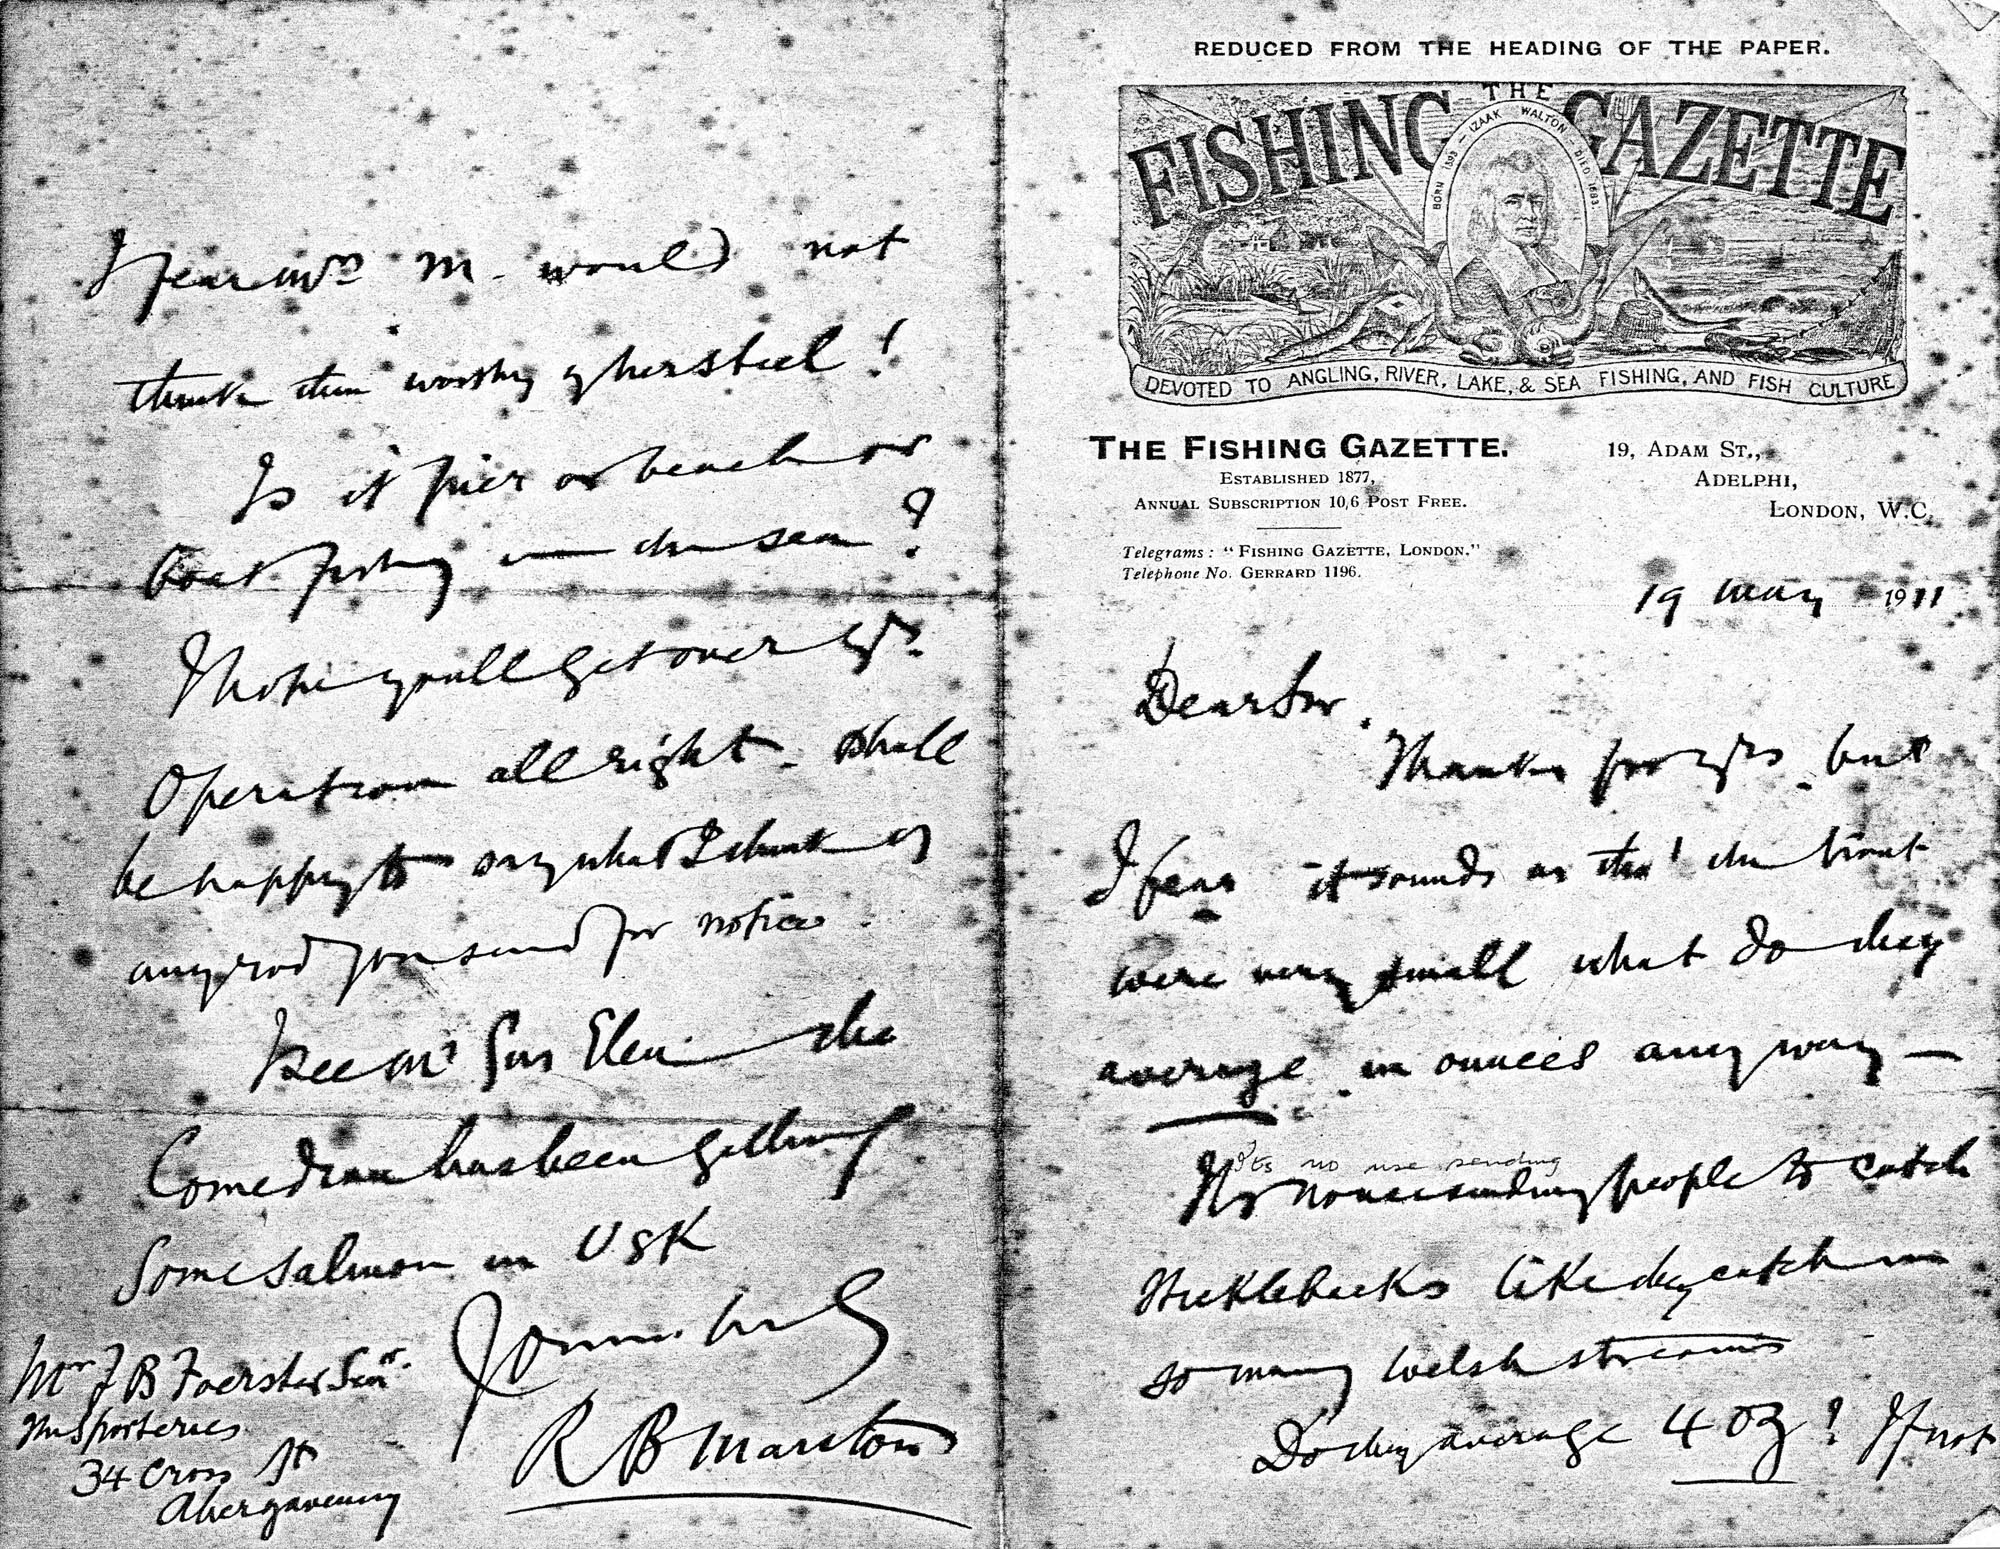 REDUCED FROM THE HEADING OF THE PAPER.
THE
FISHING GAZETTE
BORN 1593 – IZAAK WALTON – DIED 1683
DEVOTED TO ANGLING, RIVER, LAKE, & SEA FISHING, AND FISH CULTURE
THE FISHING GAZETTE.
ESTABLISHED 1877,
ANNUAL SUBSCRIPTION 10,6 POST FREE.
Telegrams: "FISHING GAZETTE, LONDON."
Telephone No. GERRARD 1196.
19, ADAM ST.,
ADELPHI,
LONDON, W.C.
19 May 1911
Dear Sir.
Thanks for yrs. but
I fear it sounds as tho' the trout
were very small what do they
average in ounces anyway —
Its no use sending
Its no use sending people to catch
sticklebacks like they catch in
so many Welsh streams
Do they average 4 oz? If not
I fear Mrs M. would not
think them worthy of her steel!
Is it pier or beach or
boat fishing in the sea?
I hope you'll get over yr.
Operation all right. Shall
be happy to say what I think of
any rod you send for notice.
I see Mr Gus Elen the
Comedian has been getting
some salmon in Usk
Yours truly
R B Marston
Mr J B Foerster Senr.
The Sporteries
34 Cross St
Abergavenny